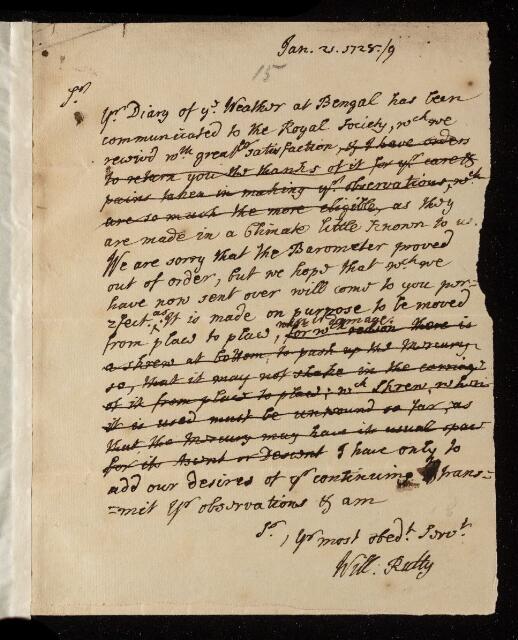 Jan. 21. 1728/9
15
Sr.
Yr. Diary of ye. Weather at Bengal has been
communicated to the Royal Society, wch we
receivd wth great satisfaction, & I have orders
to return you the thanks of it for yr. care &
pains taken in making yr. observations, wch
are so much the more eligible, as they
are made in a Climate little known to us.
We are sorry that the Barometer proved
out of order, but we hope that wch we
have now sent over will come to you per-
=fect. as It is made on purpose to be moved
from place to place, without damage;
for wch reason there is
a skrew at bottom, to push up the Mercury
so, that it may not shake in the carriage
of it from place to place; wch Skrew, when
it is used must be unwound so far, as
that the Mercury may have its usual space
for its Ascent or Descent I have only to
add our desires of yr continuing to trans=
=mit yr observations & am
Sr., Yr most obedt. Servt.
Will. Rutty